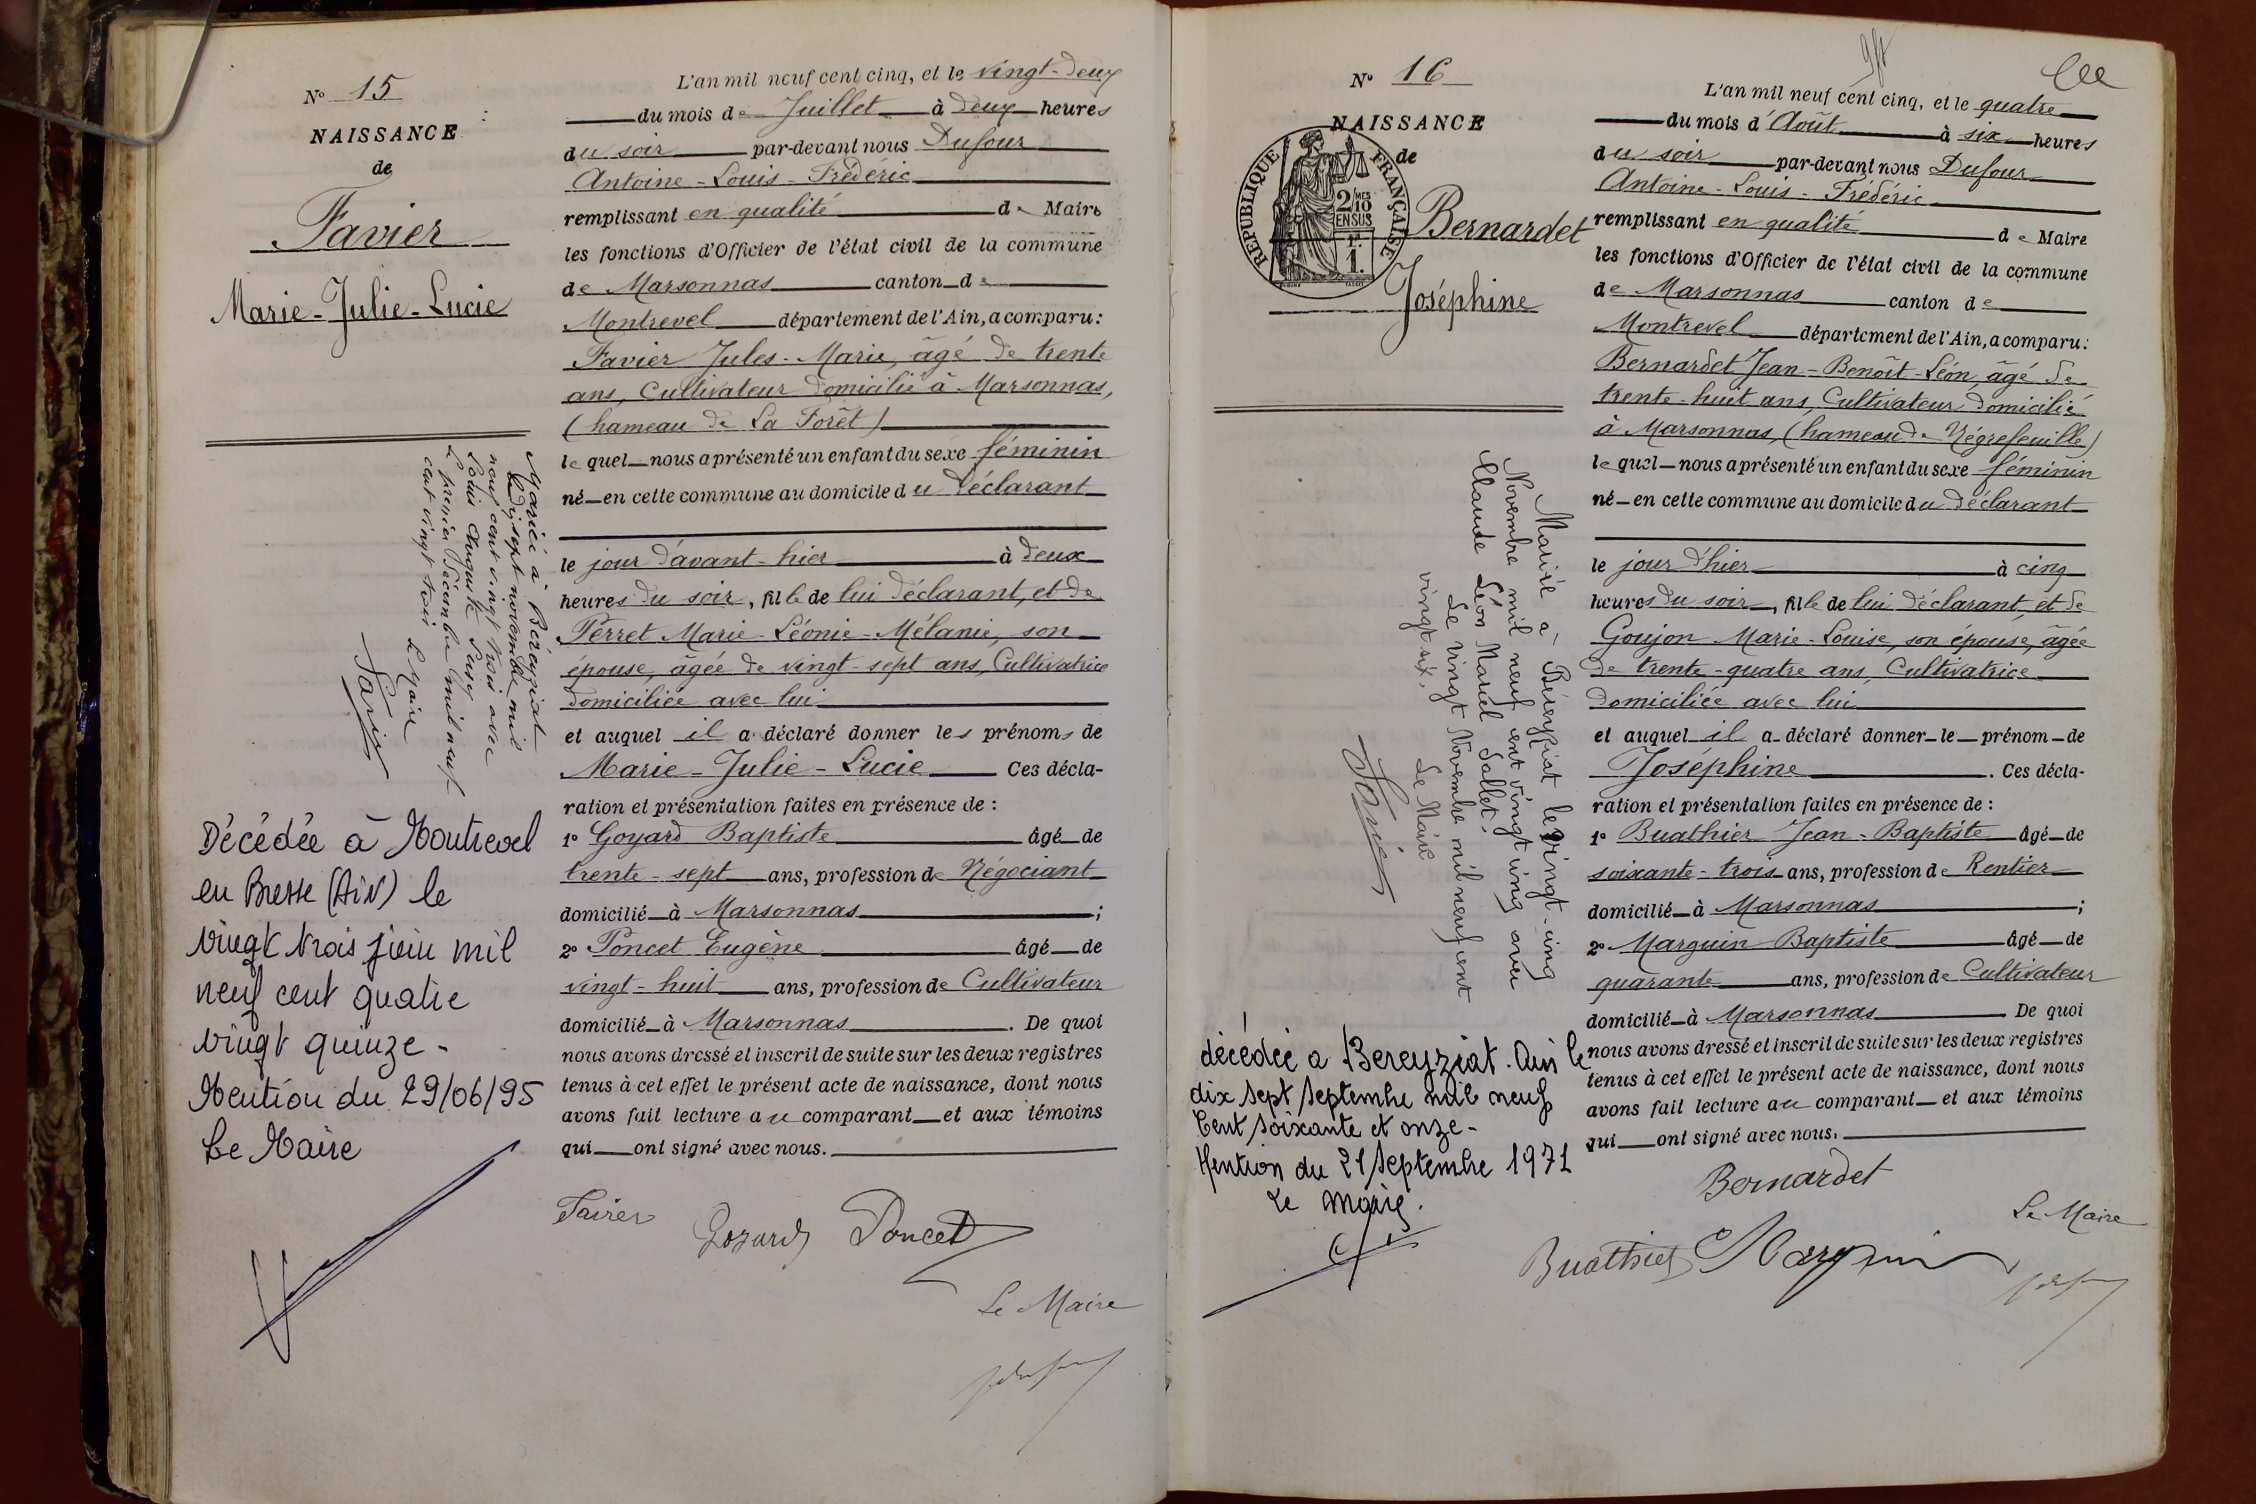 Nº 15
NAISSANCE
de
Favier
Marie-Julie-Lucie
Mariée à Béréyziat
le dix sept novembre mil
neuf cent vingt trois avec
Louis Auguste
Le premier Décembre mil neuf
cent vingt trois Le Maire
Favier
Décédée à Montrevel
en Bresse (Ain) le
vingt trois juin mil
neuf cent quatre
vingt quinze -
Mention du 29/06/95
Le Maire
L'an mil neuf cent cinq, et le vingt-deux
du mois de Juillet à deux heures
du soir par-devant nous Dufour
Antoine-Louis-Frédéric
remplissant en qualité de Maire
les fonctions d'Officier de l'état civil de la commune
de Marsonnas canton de
Montrevel département de l'Ain, a comparu :
Favier Jules-Marie, âgé de trente
ans, Cultivateur domicilié à Marsonnas,
(hameau de La Forêt)
lequel nous a présenté un enfant du sexe féminin
né en cette commune au domicile du déclarant
le jour d'avant-hier à deux
heures du soir, fille de lui déclarant, et de
Perret Marie-Léonie-Mélanie, son
épouse, âgée de vingt-sept ans, Cultivatrice
domiciliée avec lui
et auquel il a déclaré donner les prénoms de
Marie-Julie-Lucie Ces décla-
ration et présentation faites en présence de :
1º Goyard Baptiste âgé de
trente-sept ans, profession de Négociant
domicilié à Marsonnas ;
2º Poncet Eugène âgé de
vingt-huit ans, profession de Cultivateur
domicilié à Marsonnas . De quoi
nous avons dressé et inscrit de suite sur les deux registres
tenus à cet effet le présent acte de naissance, dont nous
avons fait lecture au comparant et aux témoins
qui ont signé avec nous.
Favier Goyard Poncet
Le Maire
Nº 16
NAISSANCE
de
RÉPUBLIQUE FRANÇAISE
2/10 MES
EN SUS
1F.
1.
Bernardet
Joséphine
Mariée à Béreyziat le vingt-cinq
Novembre mil neuf cent vingt cinq avec
Claude Léon Marcel Sallet.
Le vingt Novembre mil neuf cent
vingt six. Le Maire
Favier
décédée a Bereyziat. Ain le
dix sept septembre mil neuf
Cent soixante et onze -
Mention du 21 septembre 1971
Le Maire.
L'an mil neuf cent cinq, et le quatre
du mois d'Août à six heures
du soir par-devant nous Dufour
Antoine-Louis-Frédéric
remplissant en qualité de Maire
les fonctions d'Officier de l'état civil de la commune
de Marsonnas canton de
Montrevel département de l'Ain, a comparu :
Bernardet Jean-Benoît-Léon, âgé de
trente-huit ans, Cultivateur domicilié
à Marsonnas, (hameau de Négrefeuille)
lequel nous a présenté un enfant du sexe féminin
né en cette commune au domicile du déclarant
le jour d'hier à cinq
heures du soir, fille de lui déclarant, et de
Goujon Marie-Louise, son épouse, âgée
de trente-quatre ans, Cultivatrice
domiciliée avec lui
et auquel il a déclaré donner le prénom de
Joséphine . Ces décla-
ration et présentation faites en présence de :
1º Buathier Jean-Baptiste âgé de
soixante-trois ans, profession de Rentier
domicilié à Marsonnas ;
2º Marguin Baptiste âgé de
quarante ans, profession de Cultivateur
domicilié à Marsonnas De quoi
nous avons dressé et inscrit de suite sur les deux registres
tenus à cet effet le présent acte de naissance, dont nous
avons fait lecture au comparant et aux témoins
qui ont signé avec nous.
Bernardet
Le Maire
Buathier Marguin